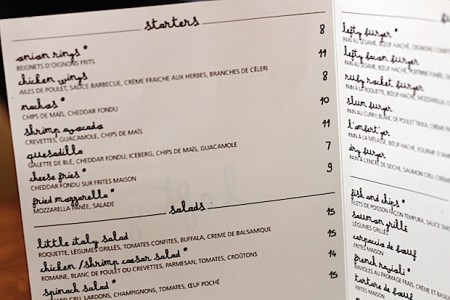 starters
onion rings * 8
BEIGNETS D'OIGNONS FRITS
chicken wings 11
AILES DE POULET, SAUCE BARBECUE, CRÈME FRAICHE AUX HERBES, BRANCHES DE CÉLERI
nachos * 8
CHIPS DE MAÏS, CHEDDAR FONDU
shrimp avocado 10
CREVETTES, GUACAMOLE, CHIPS DE MAÏS
quesadilla 11
GALETTE DE BLÉ, CHEDDAR FONDU, ICEBERG, CHIPS DE MAÏS, GUACAMOLE
cheese fries * 7
CHEDDAR FONDU SUR FRITES MAISON
fried mozzarella * 9
MOZZARELLA PANÉE, SALADE
salads
little italy salad 15
ROQUETTE, LÉGUMES GRILLÉS, TOMATES CONFITES, BUFFALA, CREME DE BALSAMIQUE
chicken / shrimp caesar salad * 15
ROMAINE, BLANC DE POULET OU CREVETTES, PARMESAN, TOMATES, CROÛTONS
spinach salad * 14
CRU, LARDONS, CHAMPIGNONS, TOMATES, ŒUF POCHÉ
15
lefty burger
PAIN AU SÉSAME, BŒUF HACHÉ, OIGNONS
lefty bacon burger
PAIN AU SÉSAME, BŒUF HACHÉ
ruby rocket burger
PAIN À LA ROQUETTE, BŒUF HACHÉ, MOZZARELLA
slum burger
PAIN AU CURRY, BLANC DE POULET TIKKA
PAIN À LA MÉLASSE, BŒUF HACHÉ
dry burger
PAIN À L'ENCRE DE SEICHE, SAUMON CRU
fish and chips *
FILETS DE POISSON FAÇON TEMPURA, SAUCE
saumon grillé
LÉGUMES GRILLÉS
carpaccio de bœuf
FRITES MAISON
french ravioli *
RAVIOLES AU FROMAGE FRAIS, CRÈME
tartare de bœuf
FRITES MAISON